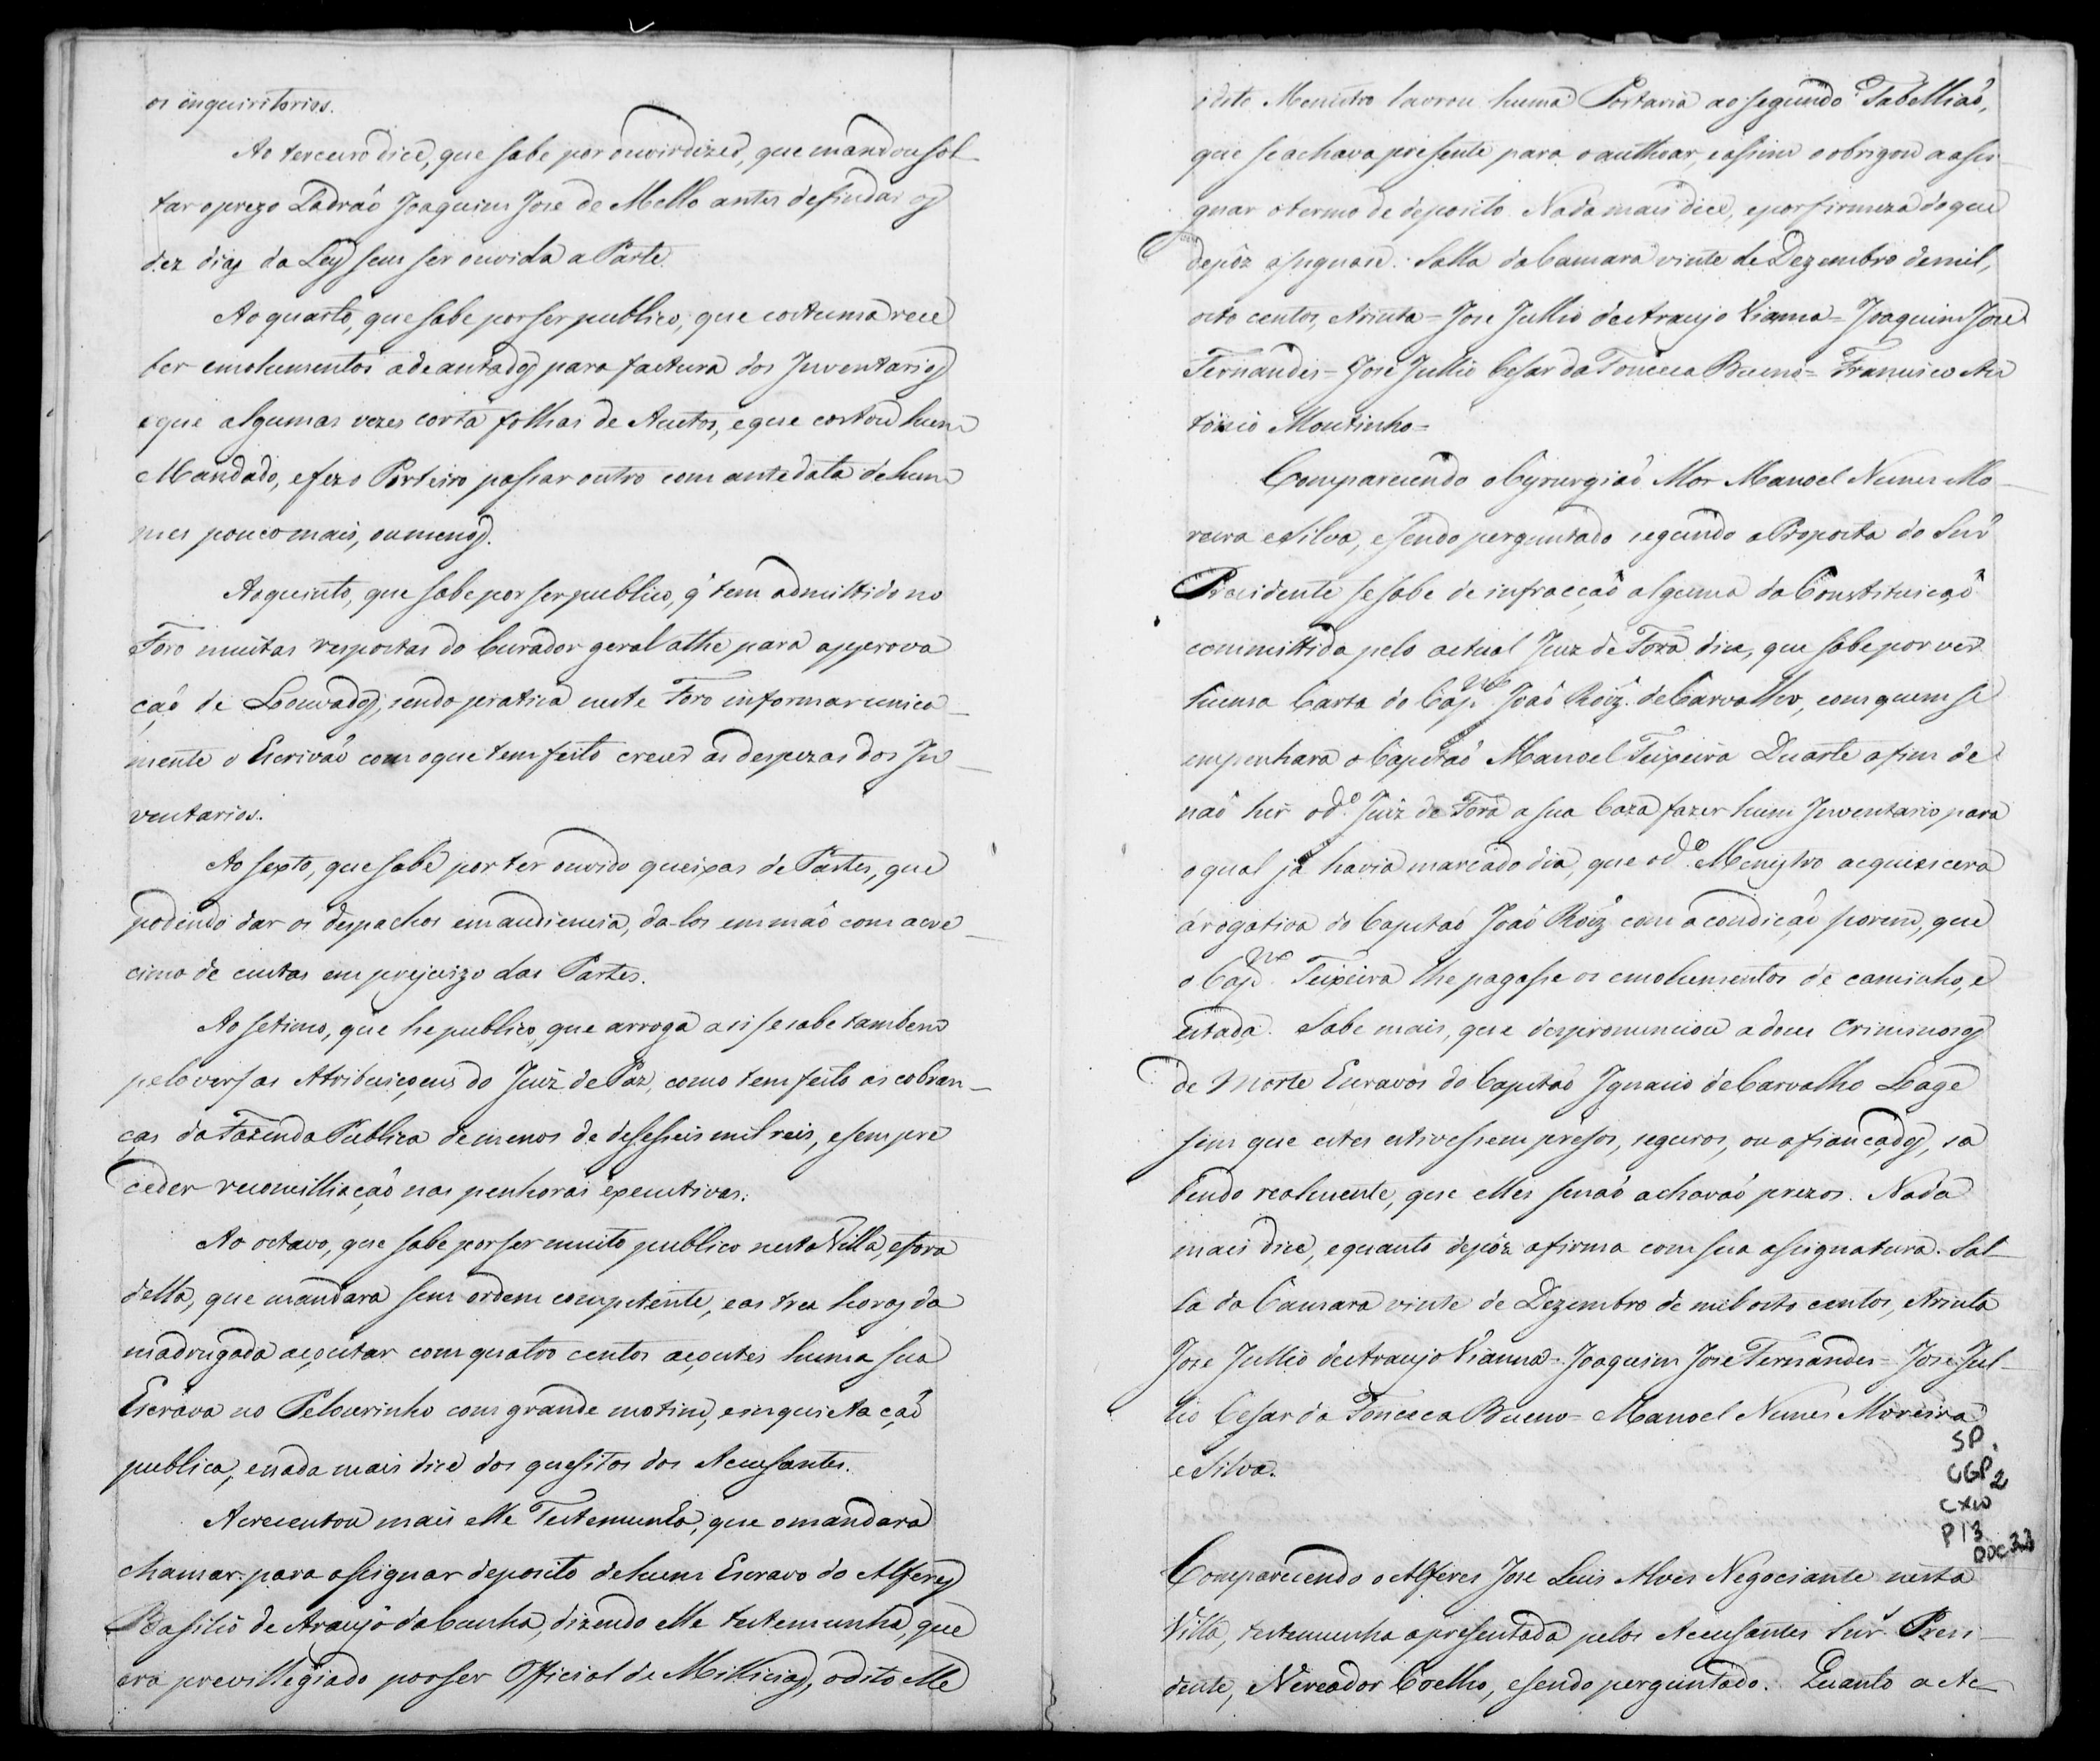 os inquiritorios.
Ao terceiro dice, que sabe por ouvir dizer, que mandou sol-
tar o prezo Ladraõ Joaquim Jose de Mello antes de findar os
dez dias da Ley sem ser ouvida a Parte.
Ao quarto, que sabe por ser publico, que costuma rece
ber emolumentos adeantados para factura dos Inventarios
e que algumas vezes corta folhas de Autos, e que cortou hum
Mandado, e fez o Porteiro passar outro com antedata de hum
mes pouco mais, ou menos.
Ao quinto, que sabe por ser publico, q' tem admittido no
Foro muitas respostas do Curador geral athe para approva
çaõ de Louvados, sendo pratica neste Foro informar unica-
mente o Escrivaõ com o que tem feito crecer as despezas dos In-
ventarios.
Ao sexto, que sabe por ter ouvido queixas de Partes, que
podendo dar os despachos em audiencia, da-los em maõ com acre-
cimo de custas em prejuizo das Partes.
Ao setimo, que he publico, que arroga a si se sabe tambem
pelo versas Atribuiçoens do Juiz de Paz, como tem feito as cobran-
ças da Fazenda Publica de menos de desesseis mil reis, e sem pre
ceder reconcilliaçaõ nas penhoras executivas.
Ao octavo, que sabe por ser muito publico nesta Villa, e fora
della, que mandara sem ordem competente, e as tres horas da
madrugada açoutar com quatro centos açoutes huma sua
Escrava no Pelourinho com grande motim, e inquietaçaõ
publica, e nada mais dice dos quesitos dos Acusantes.
Acrecentou mais elle Testemunha, que o mandara
chamar para assignar deposito de hum Escravo do Alferes
Basilio de Araujo da Cunha, dizendo elle testemunha, que
era previllegiado por ser Official de Millicias, o dito Me
o dito Menistro lavrou huma Portaria ao segundo Tabelliaõ,
que se achava presente para o authoar, e assim o obrigou a assi-
gnar o termo de deposito. Nada mais dice, e por firmeza do que
depôz assignou. Salla da Camara vinte de Dezembro de mil,
oito centos, e trinta = Jose Jullio de Araujo Vianna = Joaquim Jose
Fernandes = Jose Jullio Cesar da Fonceca Bueno = Francisco An
tonio Moutinho =
Comparecendo o Cyrurgiaõ Mor Manoel Nunes Mo-
reira e Silva, e sendo perguntado segundo a Proposta do Snr
Prezidente se sabe de infracçaõ alguma da Constituiçaõ
committida pelo actual Juiz de Fora dice, que sabe por ver
huma Carta do Cap.m João Roiz. de Carvalho, com quem se
empenhara o Capitaõ Manoel Teixeira Duarte a fim de
naõ hir o d.o Juiz de Fora a sua Caza fazer hum Inventario para
o qual já havia marcado dia, que o d.o Menistro acquiescera
á rogativa do Capitaõ Joaõ Roiz com a condiçaõ porem, que
o Cap.m Teixeira lhe pagasse os emolumentos de caminho, e
estada. Sabe mais, que despronunciou a dous Criminosos
de Morte Escravos do Capitaõ Ignacio de Carvalho Lage
sem que estes estivessem presos, seguros, ou afiançados, sa
bendo realmente, que elles se naõ achavaõ prezos. Nada
mais dice, e quanto depôz afirma com sua assignatura. Sal-
la da Camara vinte de Dezembro de mil oito centos, e trinta
Jose Jullio de Araujo Vianna = Joaquim Jose Fernandes = Jose Jul-
lio Cesar da Fonceca Bueno = Manoel Nunes Moreira
e Silva.
SP.
CGP2
CX10
P13
DOC33
Comparecendo o Alferes Jose Luis Alves Negociante nesta
Villa, testemunha apresentada pelos Acusantes Snr. Presi-
dente, e Vereador Coelho, e sendo perguntado. Quanto a Ac-